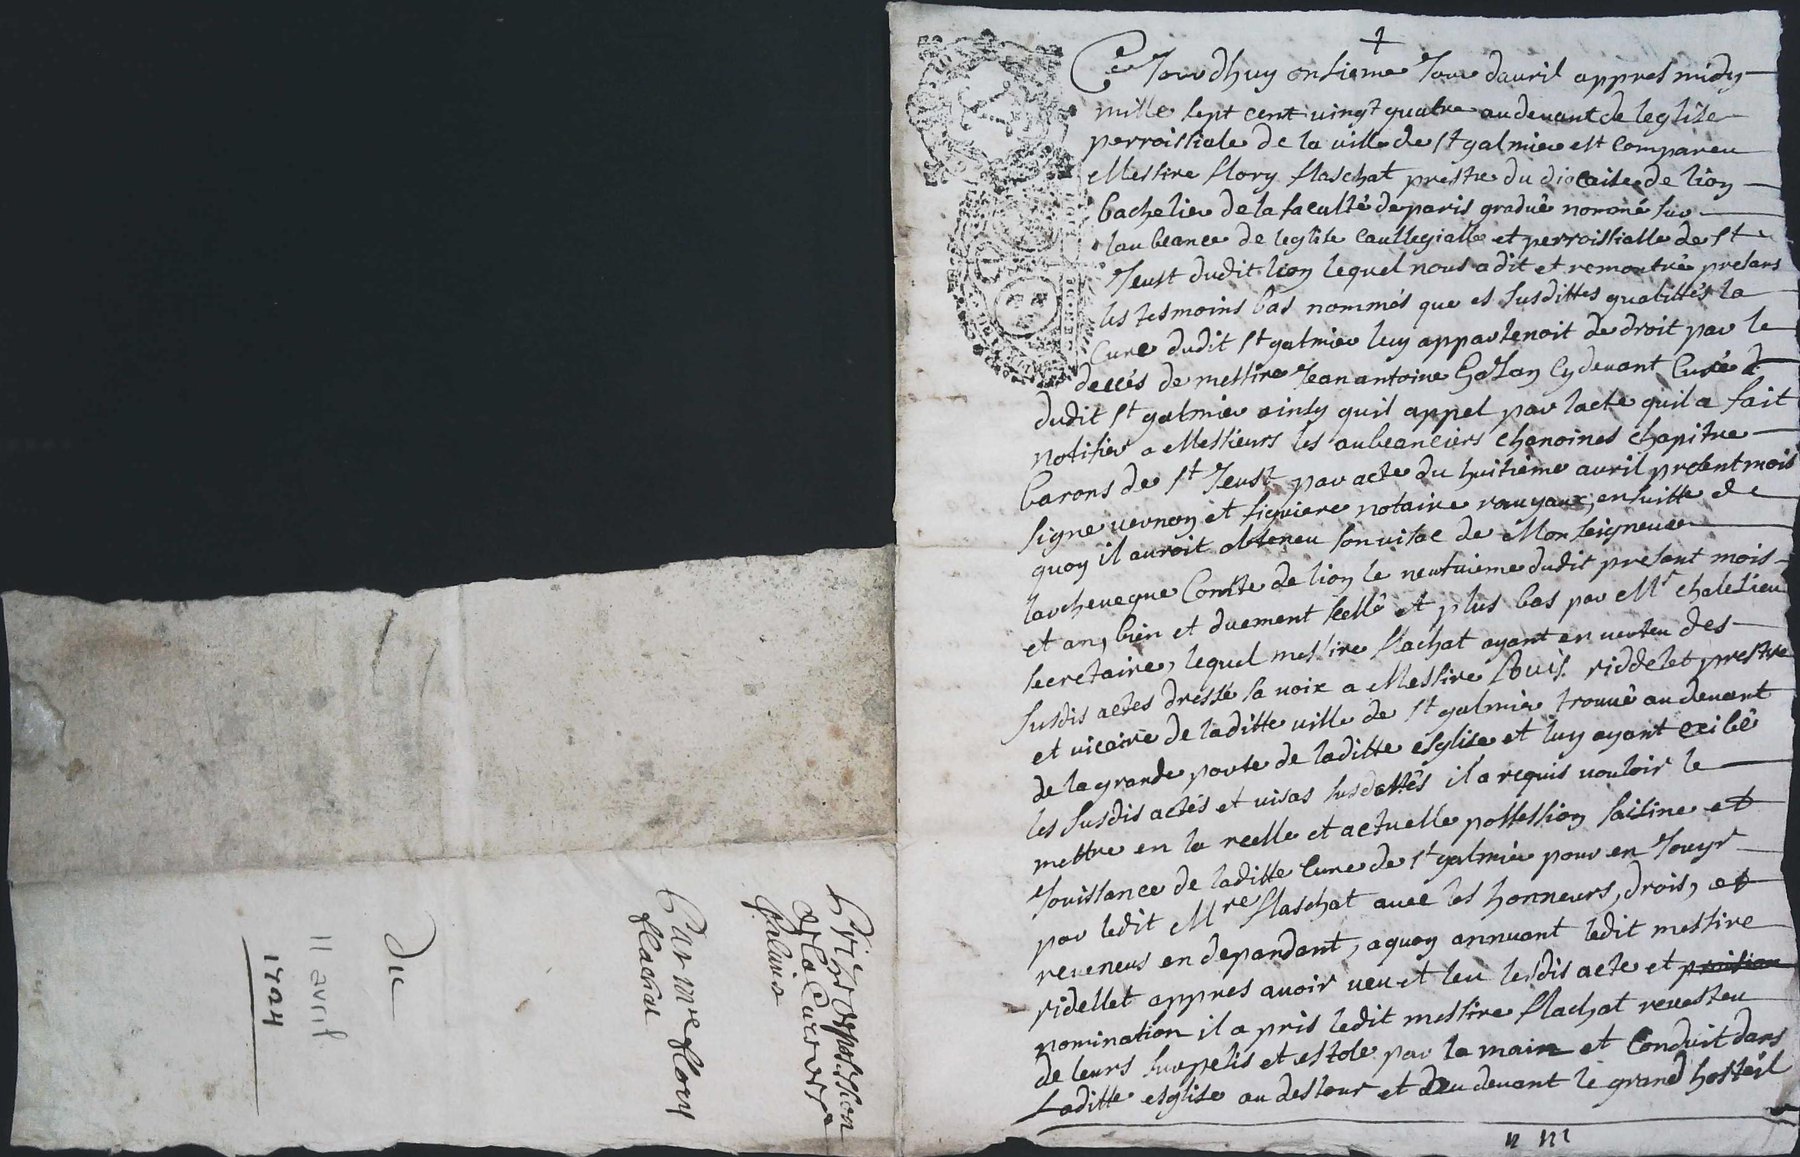 Ce Jourdhuy onsieme Jour dauril appres midy
mille sept cent uingt quatre au deuant de leglise
perroissiale de la uille de st galmier est Compareu
Messire flory flaschat prestre du diocaise de lion
bachelier de la faculté de paris gradué nommé sur
laubeance de leglise Caullegialle et perroissialle de st
Jeust dudit lion lequel nous a dit et remontré presans
les tesmoins bas nommés que es susdittes qualittés la
Cure dudit st galmier luy appartenoit de droit par le
deccés de messire Jean antoine Cy deuant Curé
dudit st galmier ainsy quil appel par lacte quil a fait
notifier a Messieurs les aubeanciers chanoines chapitre
barons de st Jeust par acte du huitieme auril present mois
signe uernon et notaire rouyaux, ensuitte de
quoy il auroit obteneu son uisac de Monseigneur
larcheueque Comte de lion le neufuieme dudit present mois
et an, bien et duement sellé et plus bas par Mr
secretaire, lequel messire flachat ayant en uerteu des
susdis actes dressé sa uoix a Messire Louis riddelet prestre
et uicaire de laditte uille de st galmier trouué au deuant
de la grande porte de laditte esglise et luy ayant exibé
les susdis actes et uisas susdattés il a requis uouloir le
mettre en la reelle et actuelle possession saisine et
Jouissance de laditte Cure de st galmier pour en Jouyr
par ledit Mre flaschat auec les honneurs, drois, et
reueneus en depandant, a quoy annuant ledit messire
ridellet appres auoir ueu et leu lesdis acte et
nomination il a pris ledit messire flachat reuesteu
de leurs surpelis et estole par la main et Conduit dans
Laditte esglise au destour et au deuant le grand hostel
de la Cure de st
galmier
Par mre florij
flachat
Du
11 avril
1724